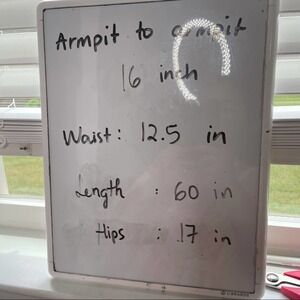 Armpit to armpit
16 inch
Waist: 12.5 in
Length : 60 in
Hips : 17 in